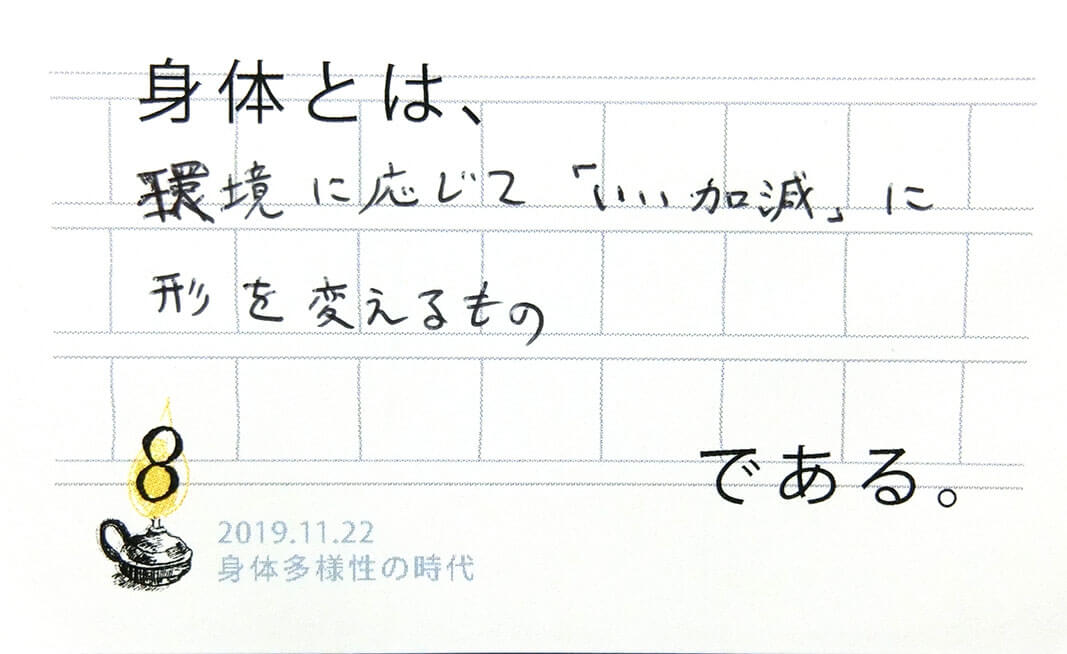 身体とは、
環境に応じて「いい加減」に
形を変えるもの
である。
8
2019.11.22
身体多様性の時代